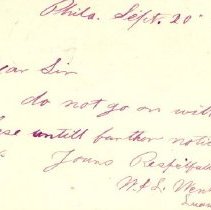 Phila. Sept. 20
ear Sir
do not go on wit
ese untill further notic
Yours Respctful
W. & L.